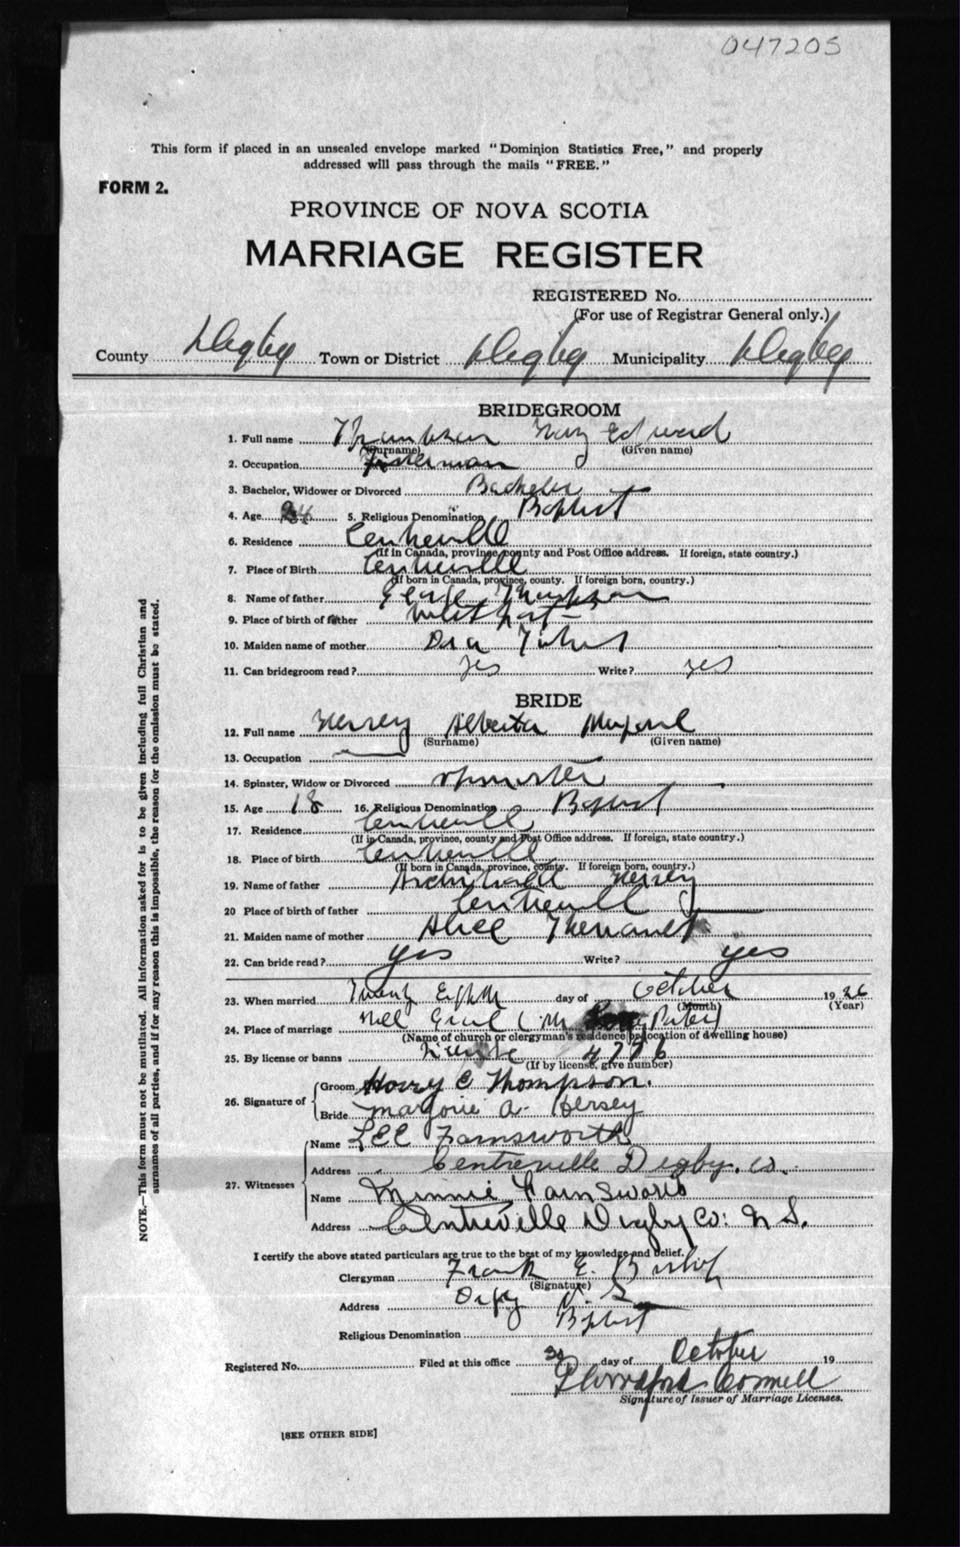 047205
This form if placed in an unsealed envelope marked "Dominion Statistics Free," and properly
addressed will pass through the mails "FREE."
FORM 2.
PROVINCE OF NOVA SCOTIA
MARRIAGE REGISTER
REGISTERED No.
(For use of Registrar General only.)
County Digby Town or District Digby Municipality Digby
BRIDEGROOM
1. Full name Thompson Edward
(Surname) (Given name)
2. Occupation Fisherman
3. Bachelor, Widower or Divorced Bachelor
4. Age 24 5. Religious Denomination Baptist
6. Residence Centreville
(If in Canada, province, county and Post Office address. If foreign, state country.)
7. Place of Birth Centreville
(If born in Canada, province, county. If foreign born, country.)
8. Name of father George Thompson
9. Place of birth of father Westport
10. Maiden name of mother
11. Can bridegroom read? yes Write? yes
BRIDE
12. Full name Hersey Alberta
(Surname) (Given name)
13. Occupation
14. Spinster, Widow or Divorced spinster
15. Age 18 16. Religious Denomination Baptist
17. Residence Centreville
(If in Canada, province, county and Post Office address. If foreign, state country.)
18. Place of birth Centreville
(If born in Canada, province, county. If foreign born, country.)
19. Name of father Archibald Hersey
20 Place of birth of father Centrevill
21. Maiden name of mother Alice
22. Can bride read? yes Write? yes
23. When married Twenty Eighth day of October 1926
(Month) (Year)
24. Place of marriage
(Name of church or clergyman's residence or location of dwelling house)
25. By license or banns License 4776
(If by license, give number)
26. Signature of Groom Harry E Thompson.
Bride Marjorie A. Hersey
27. Witnesses Name LEE Farnsworth
Address Centreville Digby. Co.
Name Minnie Farnsworth
Address Centreville Digby Co: N S.
I certify the above stated particulars are true to the best of my knowledge and belief.
Clergyman Frank E. Bishop
(Signature)
Address Digby N. S.
Religious Denomination Baptist
Registered No. Filed at this office 30 day of October 19
Cornwell
Signature of Issuer of Marriage Licenses.
[SEE OTHER SIDE]
NOTE.—This form must not be mutilated. All information asked for is to be given including full Christian and
surnames of all parties, and if for any reason this is impossible, the reason for the omission must be stated.